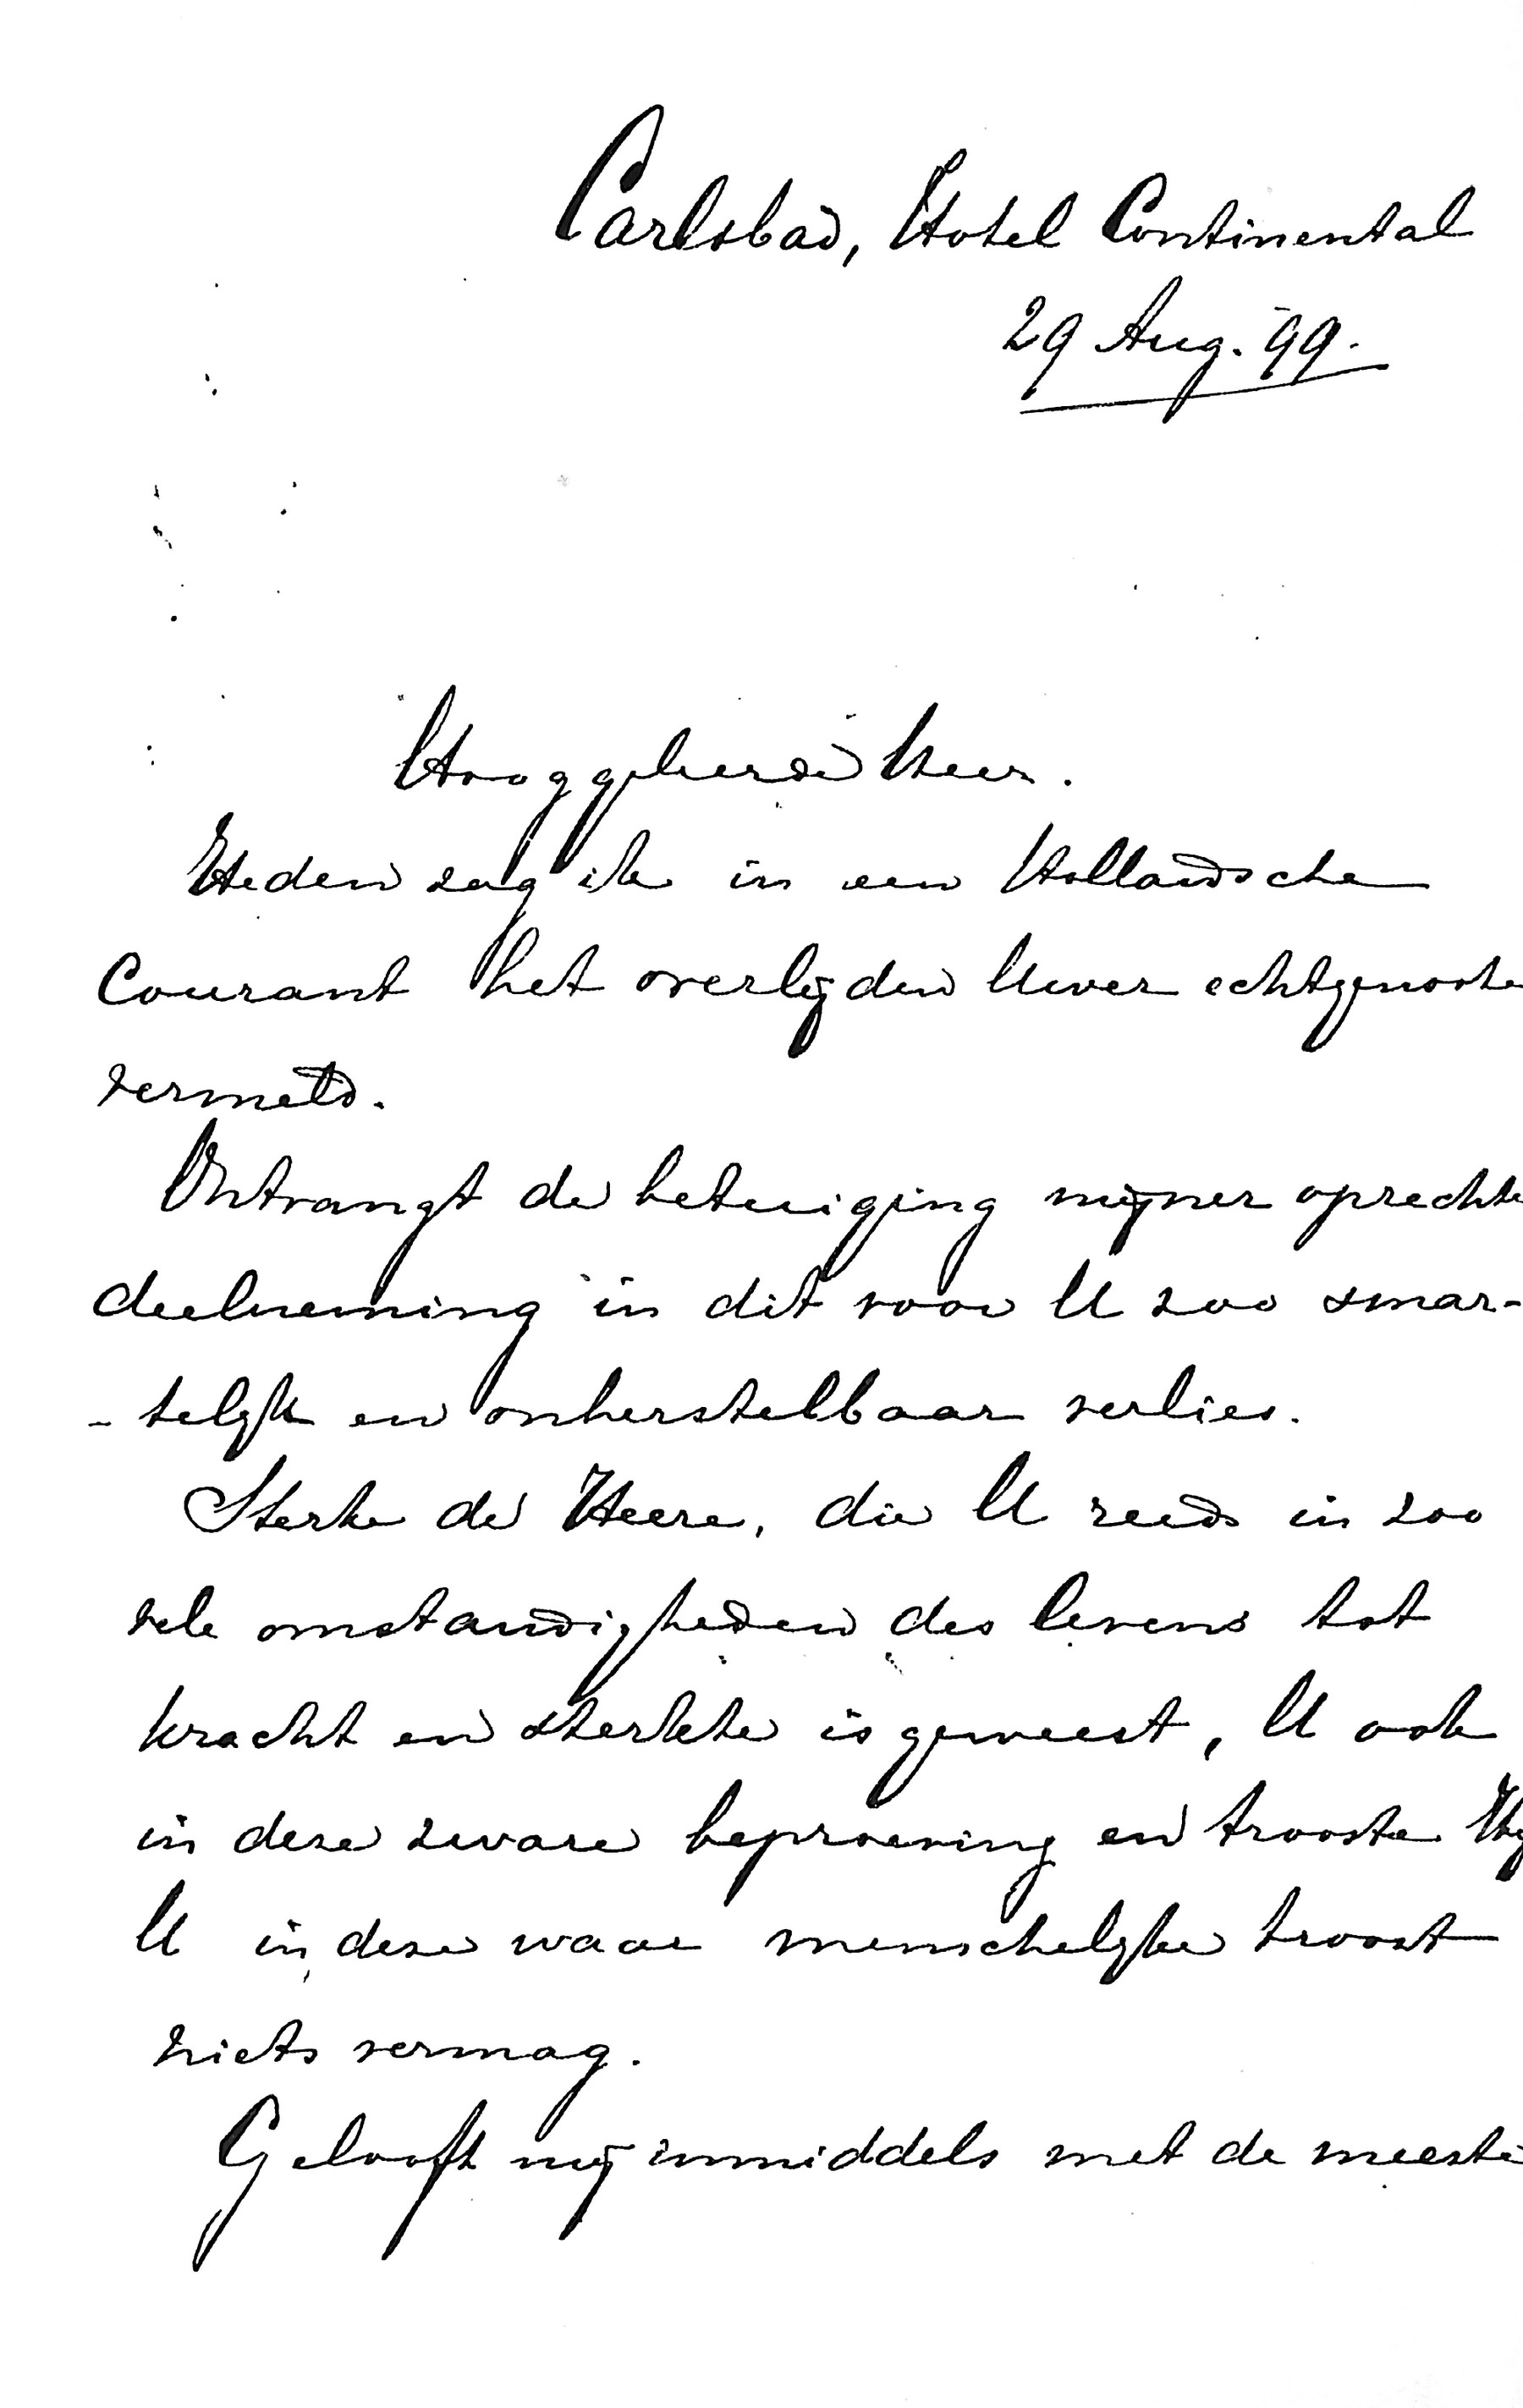 Carlsbad, Hotel Continental
29 Aug. '99.
Hooggeleerde Heer.
Heden zag ik in een Hollandsche
Courant het overlijden Uwer echtgenoote
vermeld.
Ontvangt de betuiging mijner oprechte
deelneming in dit voor U zoo smar-
-telijk en onherstelbaar verlies.
Sterke de Heere, die U reeds in zoo
vele omstandigheden des levens tot
kracht en sterkte is geweest, U ook
in deze zware beproeving en trooste Hij
U in deze waar menschelijke troost
niets vermag.
Gelooft mij inmiddels met de meeste